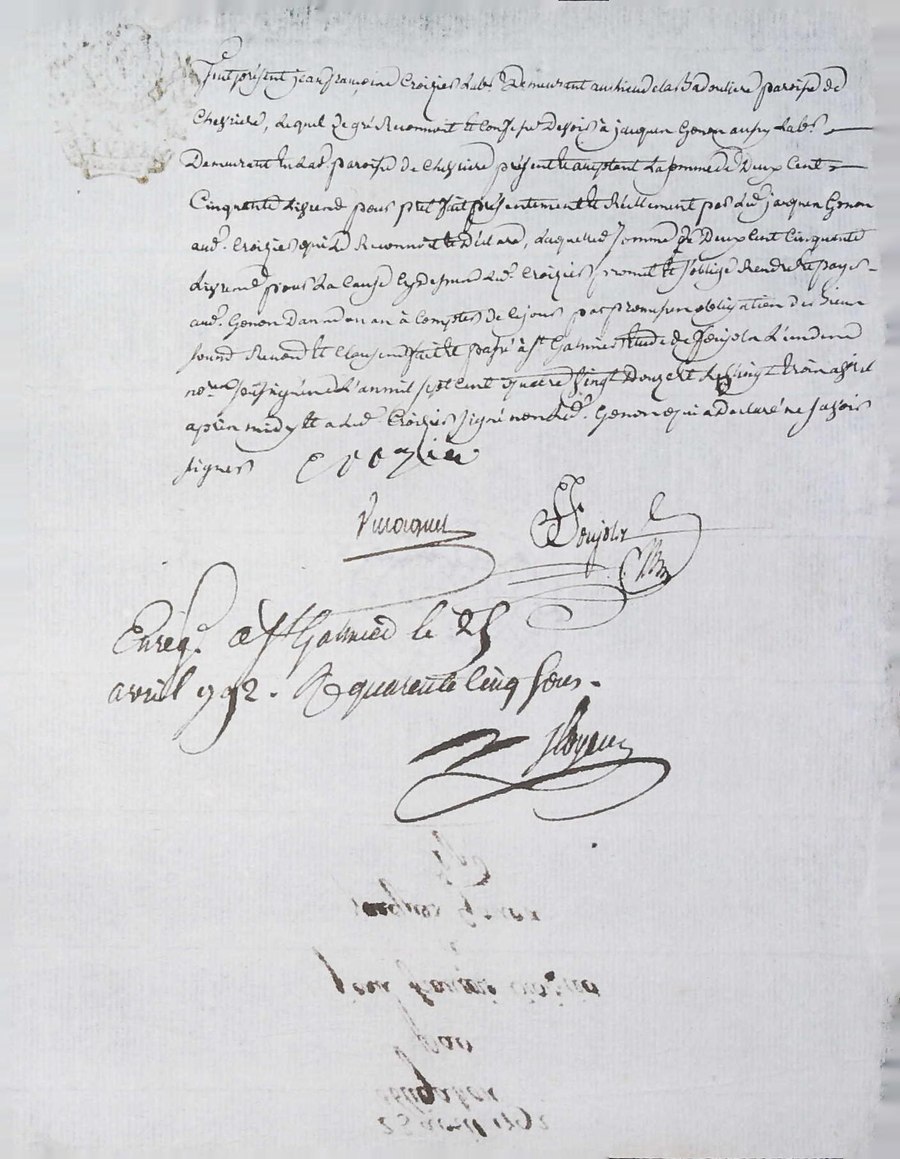 Fut présent jean françois Croizier Lab.r Demeurant au lieu de la Badouliere paroisse de
Chevriere, Lequel de gré Reconnoit et Confesse Devoir à jacques Genon aussy Lab.r
Demeurant paroisse de Chevriere présent et acceptant La somme de Deux Cent
Cinquante Livres pour prêt fait présentement et Réellement par led. jacques Genon
aud. Croizier qui Le Reconnoit et Déclare, Laquelle somme de Deux Cent Cinquante
Livres pour La Cause cy dessus Led. Croizier promet et s'oblige Rendre et payer
aud. Genon Dans un an à Compter de Ce jour par promesse obligation des biens
soumis Renon. et Clauses fait et passé à St Galmier Etude de
no.re soussigné L'an mil sept Cent quatre vingt Douze et Le vingt trois avril
après midy et a Led. Croizier signé non Led. Genon qui a Déclaré ne savoir
signer Croizier
Enreg. a St Galmier le 25
avril 792. R quarente Cinq sous.
jacques Genon
pour
par
obligation
23 avril 1792